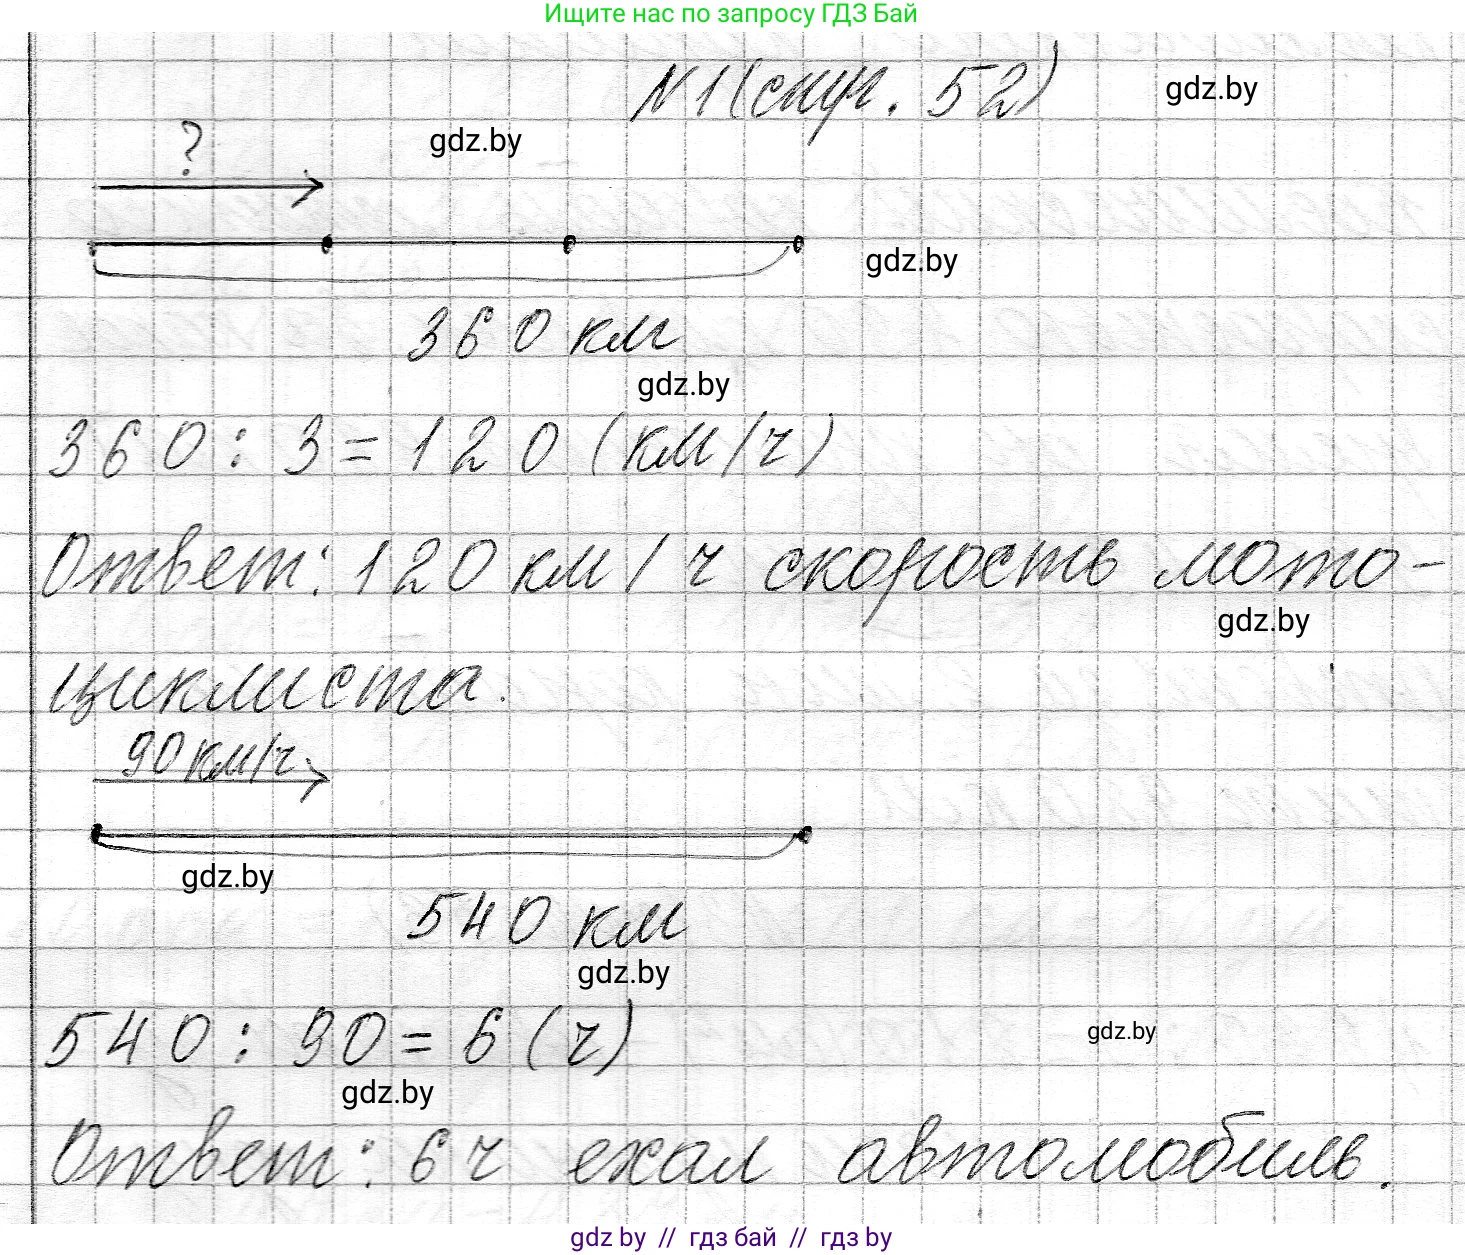 Ищите нас по запросу ГДЗ Бай
N1(стр. 52)
gdz.by
?
gdz.by
gdz.by
360 км
gdz.by
360 : 3 = 120 (км/ч)
Ответ: 120 км/ч скорость мото-
gdz.by
циклиста.
90 км/ч
gdz.by
540 км
gdz.by
540 : 90 = 6 (ч)
gdz.by
gdz.by
Ответ: 6 ч ехал автомобиль.
gdz by // гдз бай // гдз by